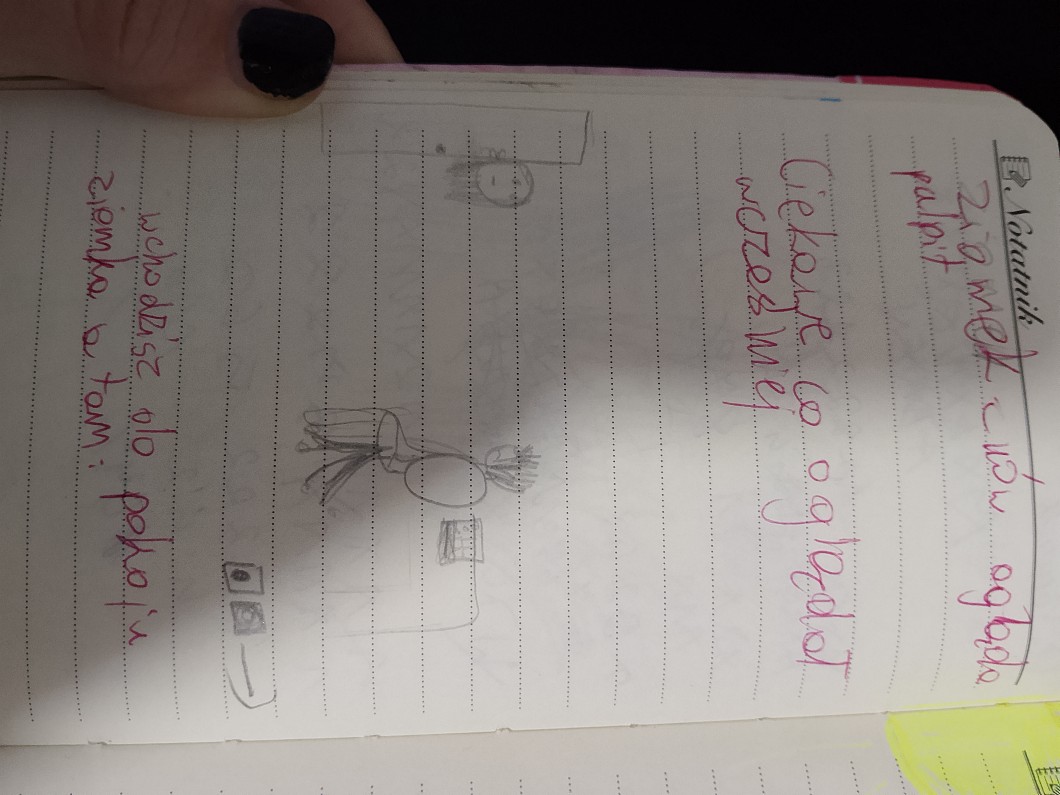 Notatnik
Ziomek znów ogląda
pulpit
Ciekawe co oglądał
wcześniej
wchodzisz do pokoju
ziomka a tam: